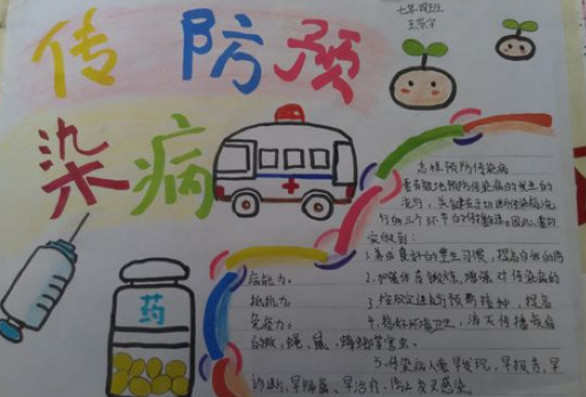 传 防 预
染 病
药
怎样预防传染病
要有效地预防传染病的发生和
流行，关键在于切断传染病流
行的三个环节
1.养成良好的卫生习惯，提高自我防
病能力。
2.加强体育锻炼，增强对传染病的
抵抗力。
3.按规定进行预防接种，提高
免疫力。
4.搞好环境卫生，消灭传播疾病
的蚊、蝇、鼠、蟑螂等害虫。
5.传染病人要早发现，早报告，早
诊断，早隔离，早治疗，防止交叉感染。